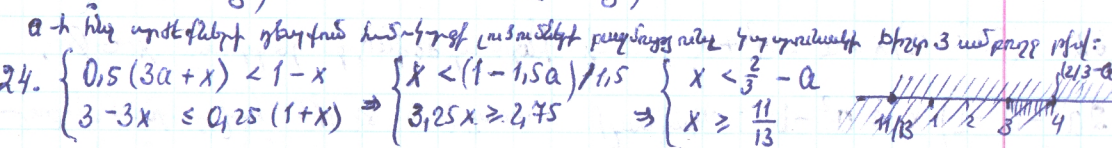 a-ի ինչ արժեքների դեպքում համակարգի լուծումների բազմությունը կպարունակի ճիշտ 3 ամբողջ թիվ:
24. { 0,5 (3a + x) < 1 - x ⇒ { x < (1 - 1,5a) / 1,5 ⇒ { x < 2/3 - a
3 - 3x ≤ 0,25 (1+x) 3,25x ≥ 2,75 x ≥ 11/13
11/13 1 2 3 4 2/3-a